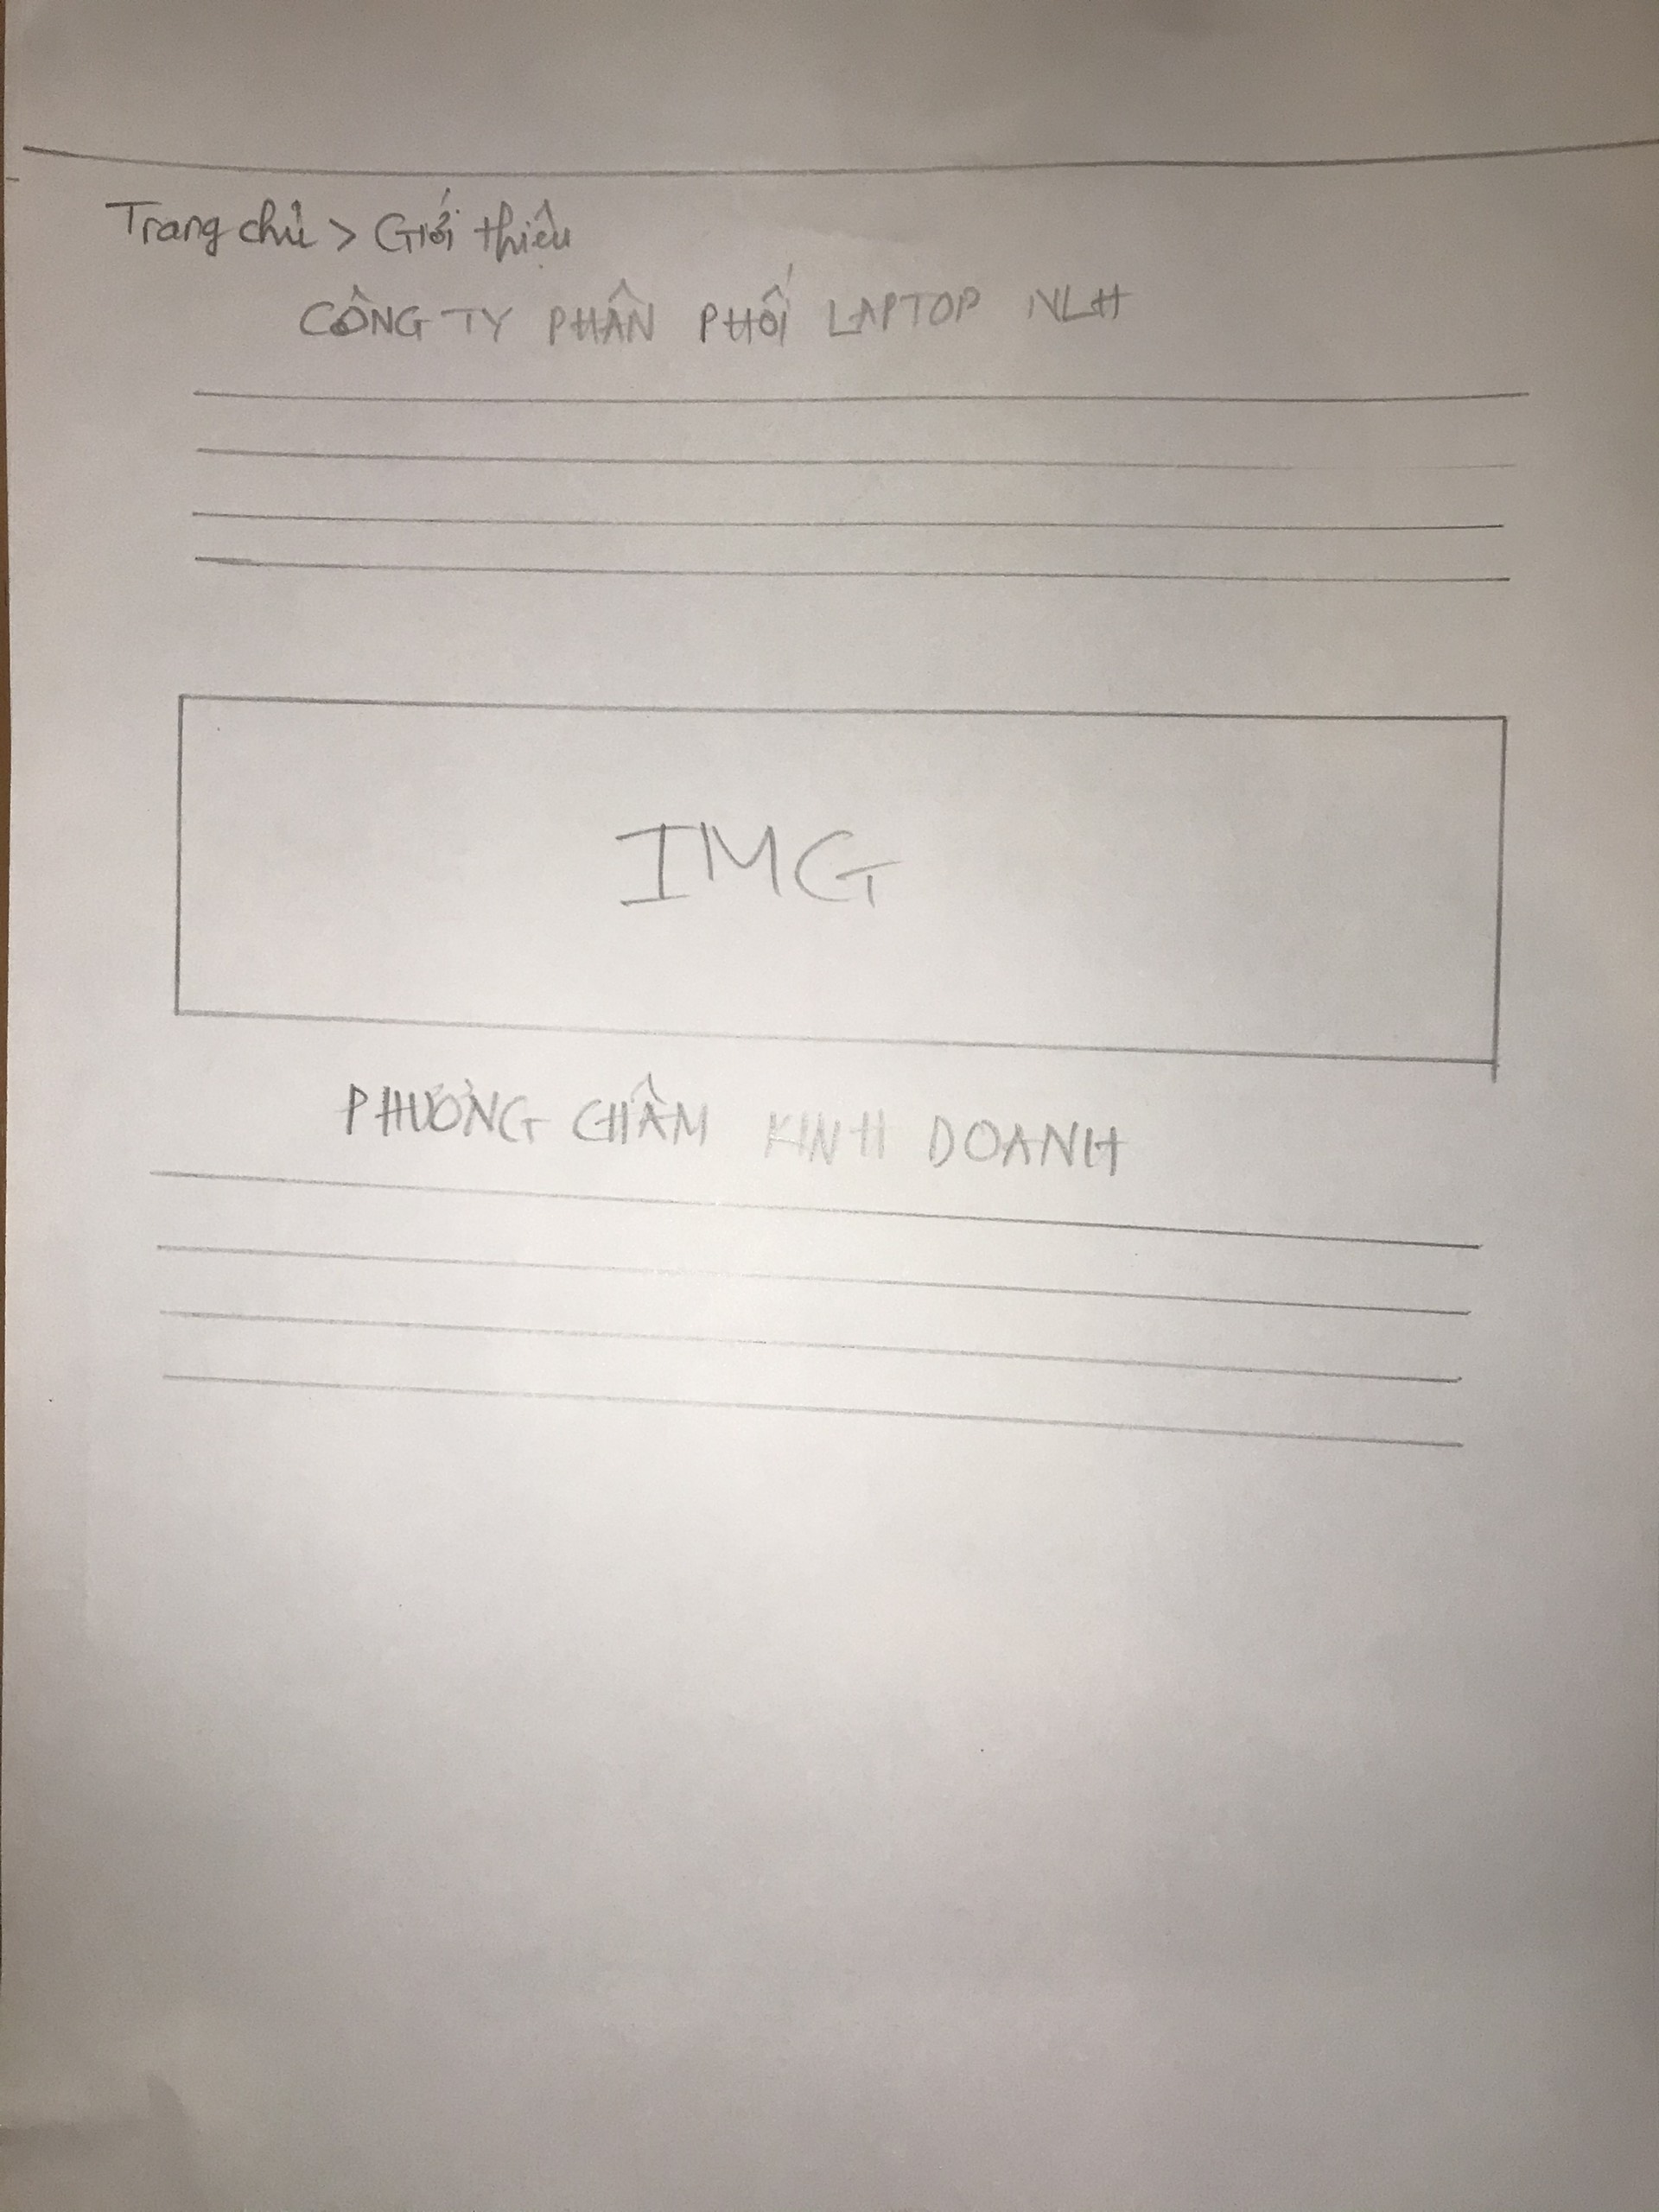 Trang chủ > Giới thiệu
CÔNG TY PHÂN PHỐI LAPTOP NLH
IMG
PHƯƠNG CHÂM KINH DOANH